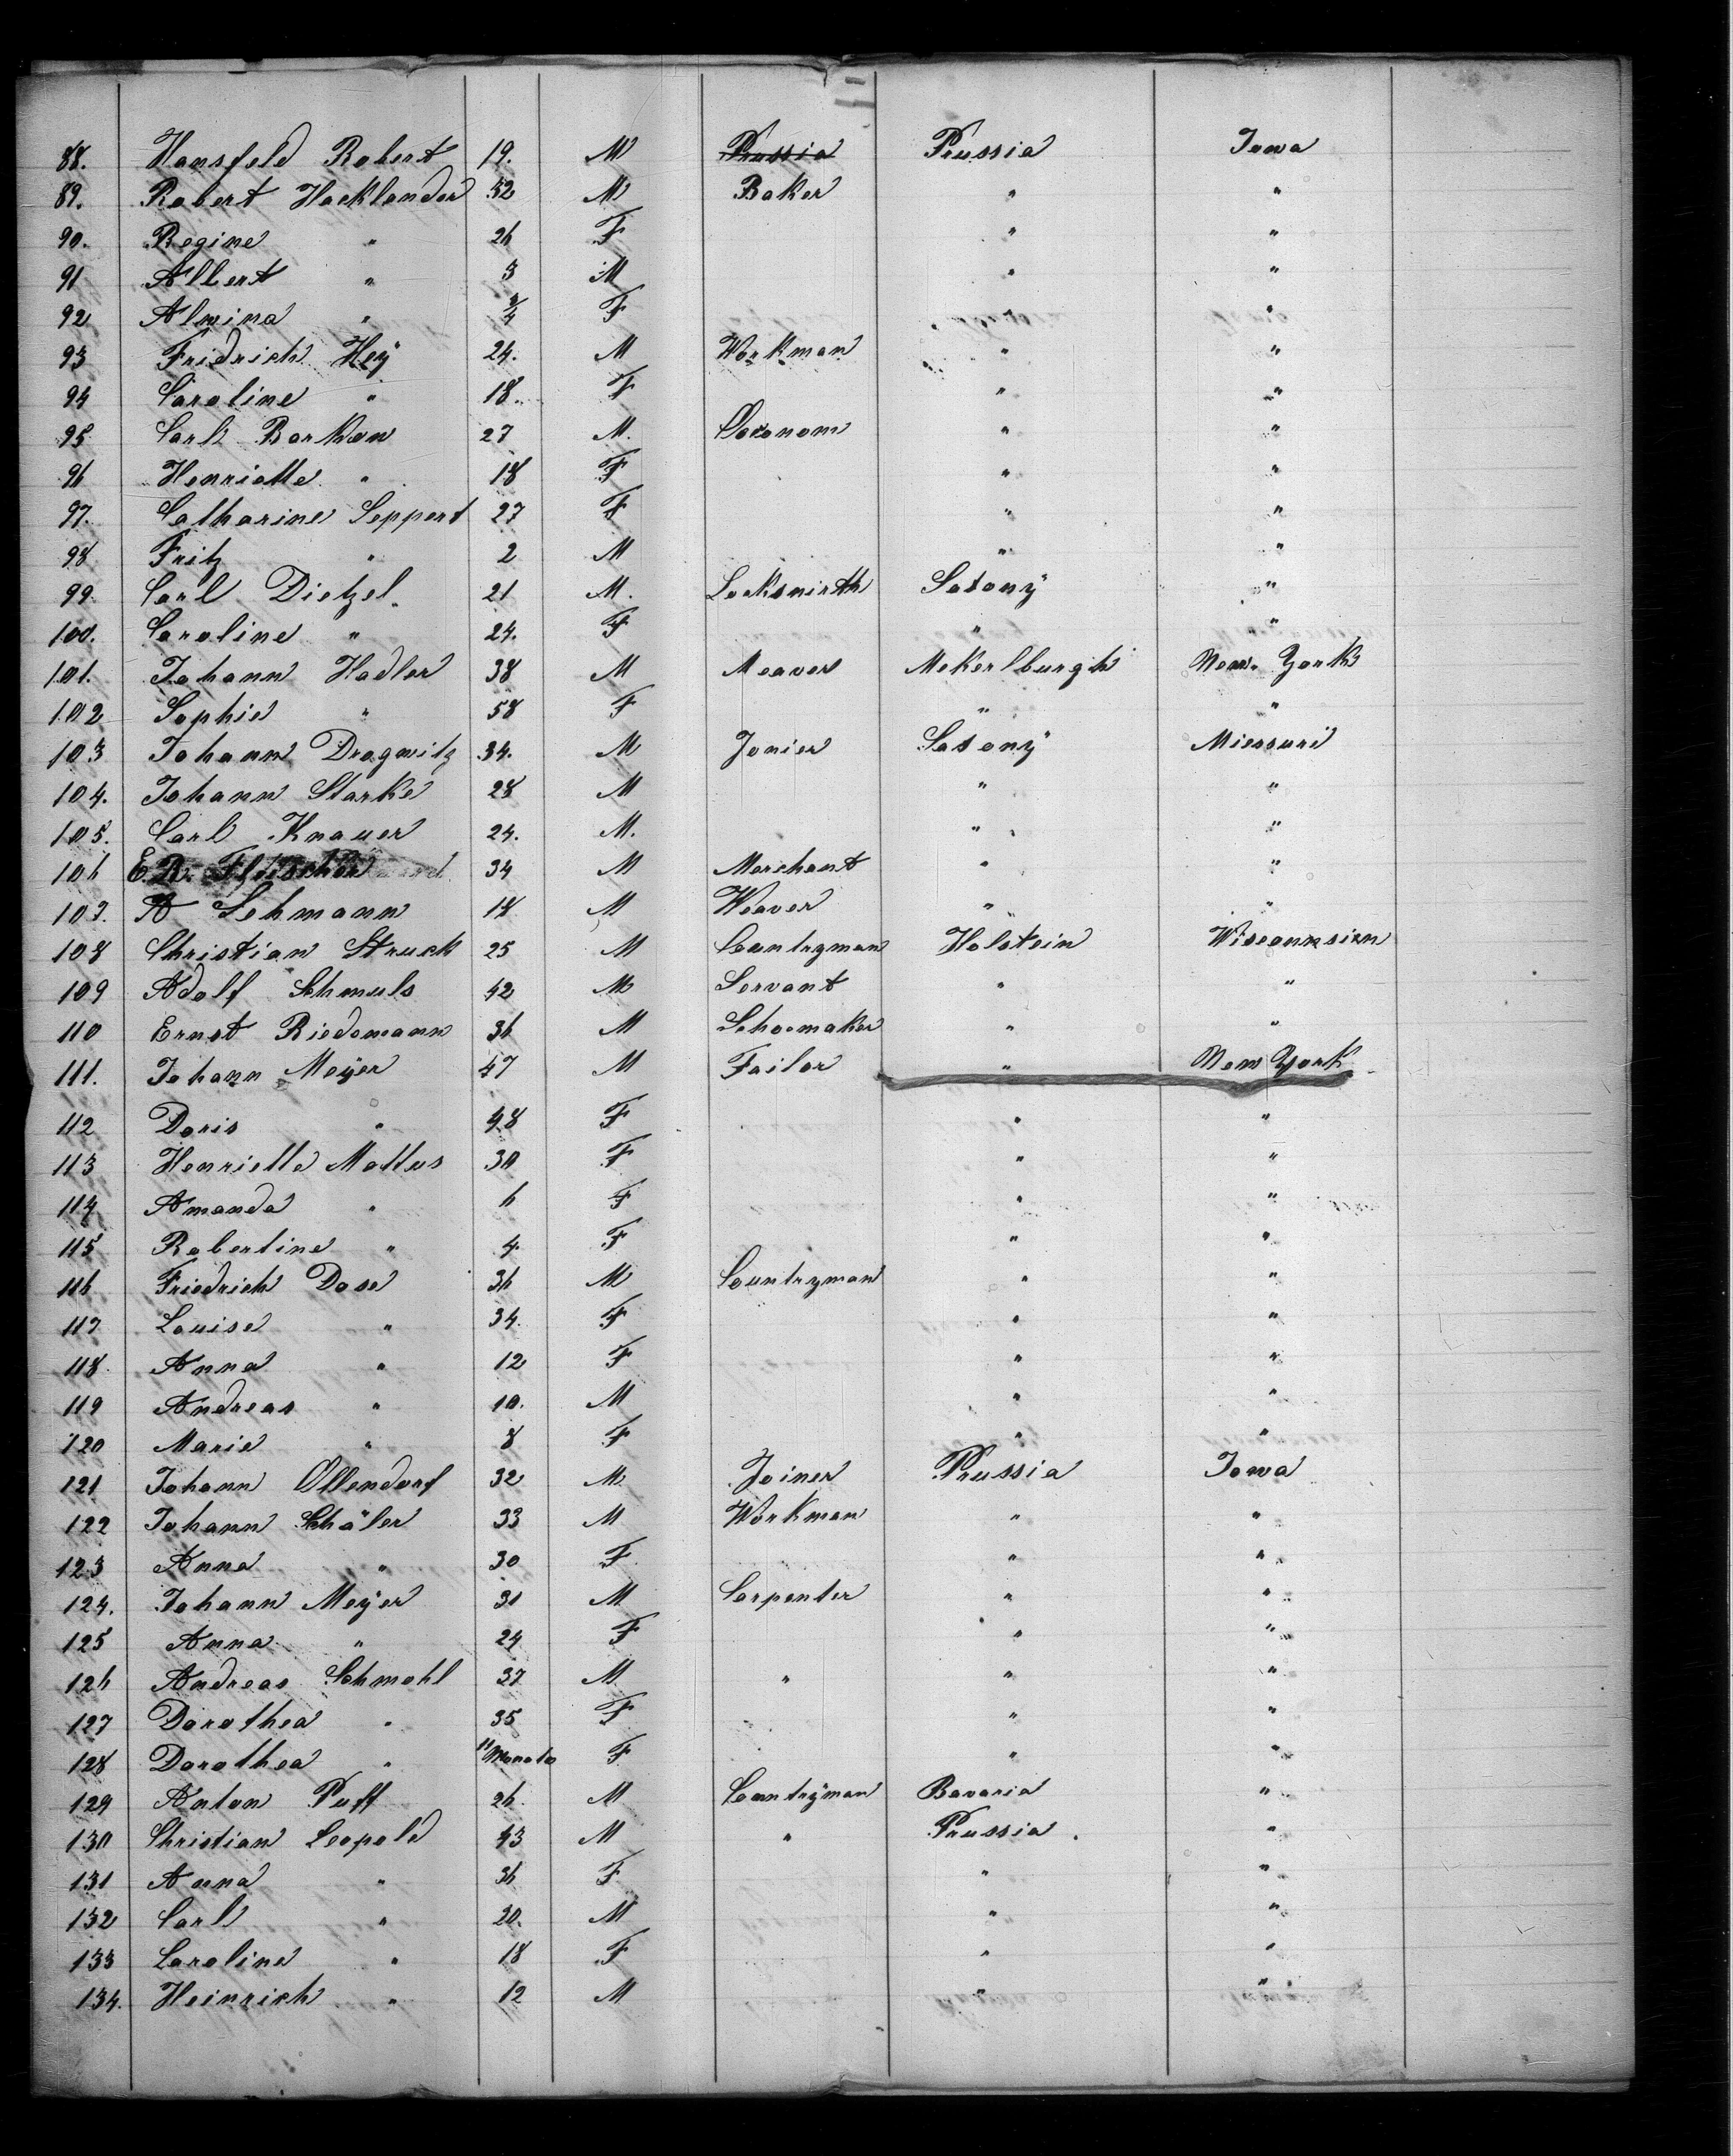 88. Hansfeld Robert 19. M Prussia Prussia Iowa
89. Robert Hacklander 32 M Baker " "
90. Regine " 26 F " "
91 Albert " 3 M " "
92 Alwina " 3/4 F " "
93 Fridrich Hey 24. M Workman " "
94 Caroline " 18. F " "
95 Carl Barkow 27 M. Oeconom " "
96 Henriette " 18 F " "
97. Catharine Seppert 27 F " "
98 Fritz " 2 M " "
99 Carl Dietzel 21 M. Locksmith Saxony "
100. Caroline " 24. F " "
101. Johann Hadler 38 M Meaver Mekerlburgh New-York
102 Sophie " 58 F " "
103 Johann Dragwitz 34. M Jonier Saxony Miessuri
104. Johann Starke 28 M " "
105. Carl Knauer 24. M. " "
106 E.R. Fleischer 34 M Merchant " "
107. A Lehmann 18 M Weaver " "
108 Christian Struck 25 M Countryman Holstein Wisconnsien
109 Adolf Schmuls 42 M Servant " "
110 Ernst Riedemann 36 M Schoemaker " "
111. Johann Meÿer 47 M Tailor " New York
112 Doris " 48 F " "
113 Henriette Mattus 30 F " "
114 Amanda " 6 F " "
115 Robertine " 4. F " "
116 Friedrich Dose 36 M Countryman " "
117 Louise " 34. F " "
118 Anna " 12 F " "
119 Andreas " 10. M " "
120 Marie " 8 F " "
121 Johann Ollendorf 32 M Joiner Prussia Iowa
122 Johann Schäler 33 M Workman " "
123 Anna " 30 F " "
124. Johann Meÿer 31 M Carpenter " "
125 Anna " 24 F " "
126 Andreas Schmahl 37 M " " "
127 Dorothea " 35 F " "
128 Dorothea " 11 Monate F " "
129 Anton Puff 26. M Countrÿman Bavaria "
130 Christian Leopold 43 M " Prussia "
131 Anna " 36 F " "
132 Carl " 20. M " "
133 Caroline " 18 F " "
134. Heinrich " 12 M " "